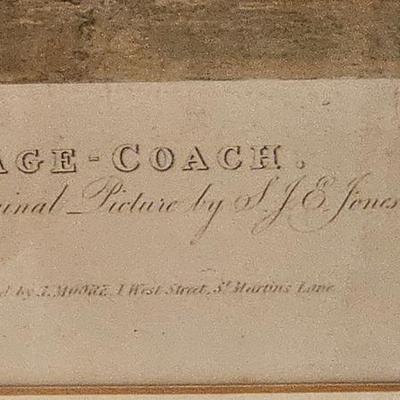 AGE-COACH.
ginal Picture by S.J.E. Jones
d by J. MOORE, 1 West Street, St Martins Lane